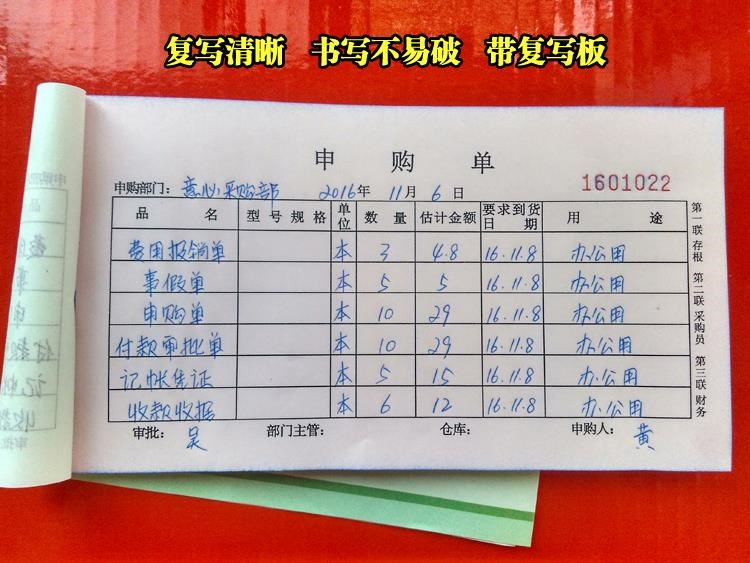 复写清晰 书写不易破 带复写板
申购单
申购部门：意心采购部 2016年 11月 6日 1601022
品名 型号规格 单位 数量 估计金额 要求到货日期 用途
费用报销单 本 3 4.8 16.11.8 办公用
事假单 本 5 5 16.11.8 办公用
申购单 本 10 29 16.11.8 办公用
付款审批单 本 10 29 16.11.8 办公用
记帐凭证 本 5 15 16.11.8 办公用
收款收据 本 6 12 16.11.8 办公用
审批：吴 部门主管： 仓库： 申购人：黄
第一联存根 第二联采购员 第三联财务